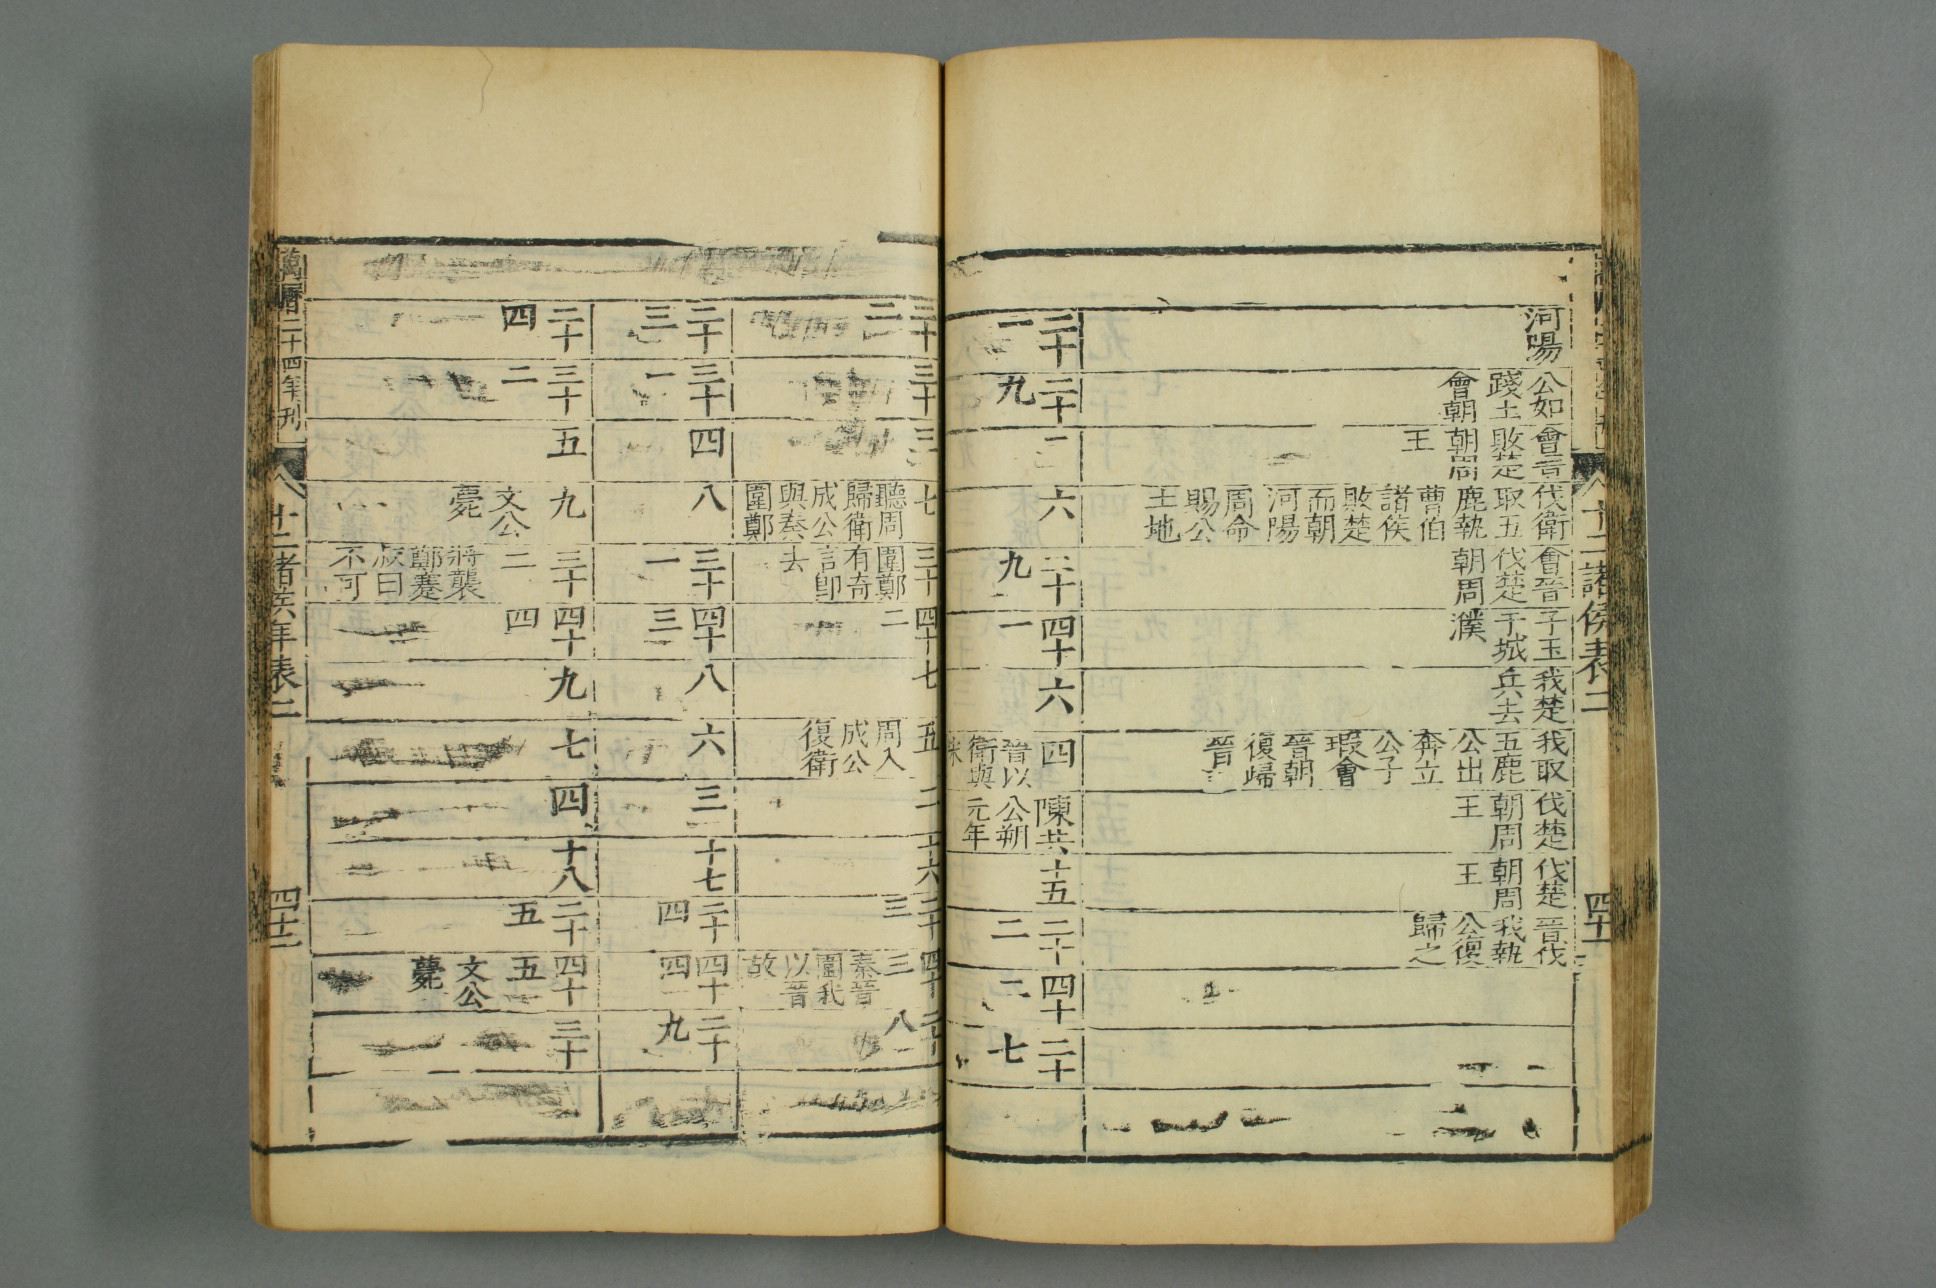 河陽
公如
踐土
會朝
會晋
敗楚
朝周
王
伐衛
取五
鹿執
曹伯
諸侯
敗楚
而朝
河陽
周命
賜公
土地
會晉
伐楚
朝周
子玉
于城
濮
我楚
兵去
我取
五鹿
公出
奔立
公子
瑕會
晉朝
復歸
晉
伐楚
朝周
王
伐楚
朝周
王
晋伐
我執
公復
歸之
二十
一
二十
九
二
六
三十
九
四十
一
六
四
晉以
衛與
宋
陳共
公朔
元年
十五
二十
二
四十
二
二十
七
十二諸侯表二
四十一
三十
二十
三十
三
七
聽周
歸衛
成公
與秦
圍鄭
三十
圍鄭
有奇
言卽
去
四十
二
七
五
周入
成公
復衛
二
十六
二十
三
四十
三
秦晉
圍我
以晉
故
二十
八
二十
三
三十
一
四
八
三十
一
四十
三
八
六
三
十七
二十
四
四十
四
二十
九
二十
四
三十
二
五
九
文公
薨
三十
二
將襲
鄭蹇
叔曰
不可
四十
四
九
七
四
十八
二十
五
四十
五
文公
薨
三十
萬曆二十四年刊
十二諸侯年表二
四十二